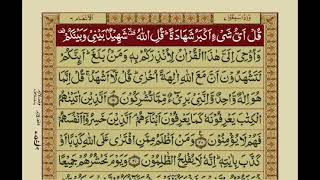 الانعام ٦
واذا سمعوا ٧
قُلْ اَیُّ شَیْءٍ اَكْبَرُ شَهَادَةً ؕ قُلِ اللّٰهُ ۫ شَهِیْدٌۢ بَیْنِیْ وَبَیْنَكُمْ ۫
وَاُوْحِیَ اِلَیَّ هٰذَا الْقُرْاٰنُ لِاُنْذِرَكُمْ بِهٖ وَمَنْۢ بَلَغَ ؕ اَىِٕنَّكُمْ
لَتَشْهَدُوْنَ اَنَّ مَعَ اللّٰهِ اٰلِهَةً اُخْرٰی ؕ قُلْ لَّاۤ اَشْهَدُ ۚ قُلْ اِنَّمَا
هُوَ اِلٰهٌ وَّاحِدٌ وَّاِنَّنِیْ بَرِیْٓءٌ مِّمَّا تُشْرِكُوْنَ ۘ اَلَّذِیْنَ اٰتَیْنٰهُمُ
الْكِتٰبَ یَعْرِفُوْنَهٗ كَمَا یَعْرِفُوْنَ اَبْنَآءَهُمْ ۘ اَلَّذِیْنَ خَسِرُوْۤا اَنْفُسَهُمْ
فَهُمْ لَا یُؤْمِنُوْنَ وَمَنْ اَظْلَمُ مِمَّنِ افْتَرٰی عَلَی اللّٰهِ كَذِبًا اَوْ
كَذَّبَ بِاٰیٰتِهٖ ؕ اِنَّهٗ لَا یُفْلِحُ الظّٰلِمُوْنَ وَیَوْمَ نَحْشُرُهُمْ جَمِیْعًا